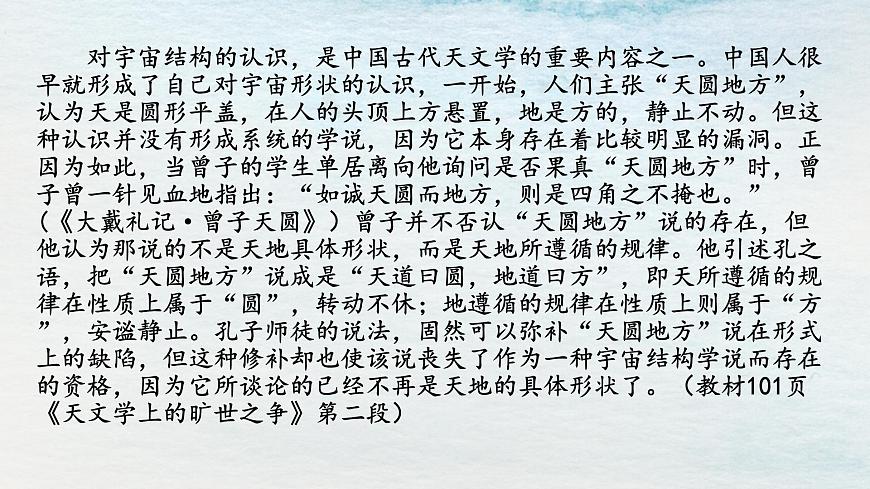 对宇宙结构的认识，是中国古代天文学的重要内容之一。中国人很
早就形成了自己对宇宙形状的认识，一开始，人们主张“天圆地方”，
认为天是圆形平盖，在人的头顶上方悬置，地是方的，静止不动。但这
种认识并没有形成系统的学说，因为它本身存在着比较明显的漏洞。正
因为如此，当曾子的学生单居离向他询问是否果真“天圆地方”时，曾
子曾一针见血地指出：“如诚天圆而地方，则是四角之不掩也。”
（《大戴礼记·曾子天圆》）曾子并不否认“天圆地方”说的存在，但
他认为那说的不是天地具体形状，而是天地所遵循的规律。他引述孔之
语，把“天圆地方”说成是“天道曰圆，地道曰方”，即天所遵循的规
律在性质上属于“圆”，转动不休；地遵循的规律在性质上则属于“方
”，安谧静止。孔子师徒的说法，固然可以弥补“天圆地方”说在形式
上的缺陷，但这种修补却也使该说丧失了作为一种宇宙结构学说而存在
的资格，因为它所谈论的已经不再是天地的具体形状了。（教材101页
《天文学上的旷世之争》第二段）